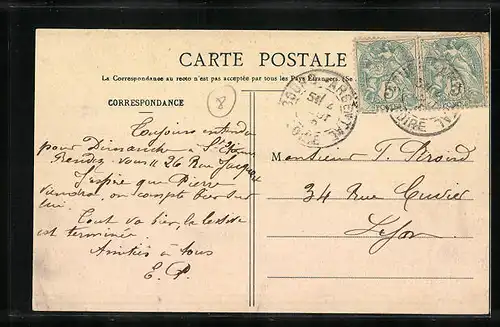 CARTE POSTALE
La Correspondance au recto n'est pas acceptée par tous les Pays Étrangers. (Se
CORRESPONDANCE
8
Toujours entendu
pour Dimanche à St
Rendez-vous 26 Rue Jacquet
J'espère que Pierre
viendra, on compte bien sur
lui.
Tout va bien, la lessive
est terminée
Amitiés à tous
E. P.
Monsieur T.
34 Rue Cuvier
Lyon
BOURG-ARGENTAL
LOIRE
5
5